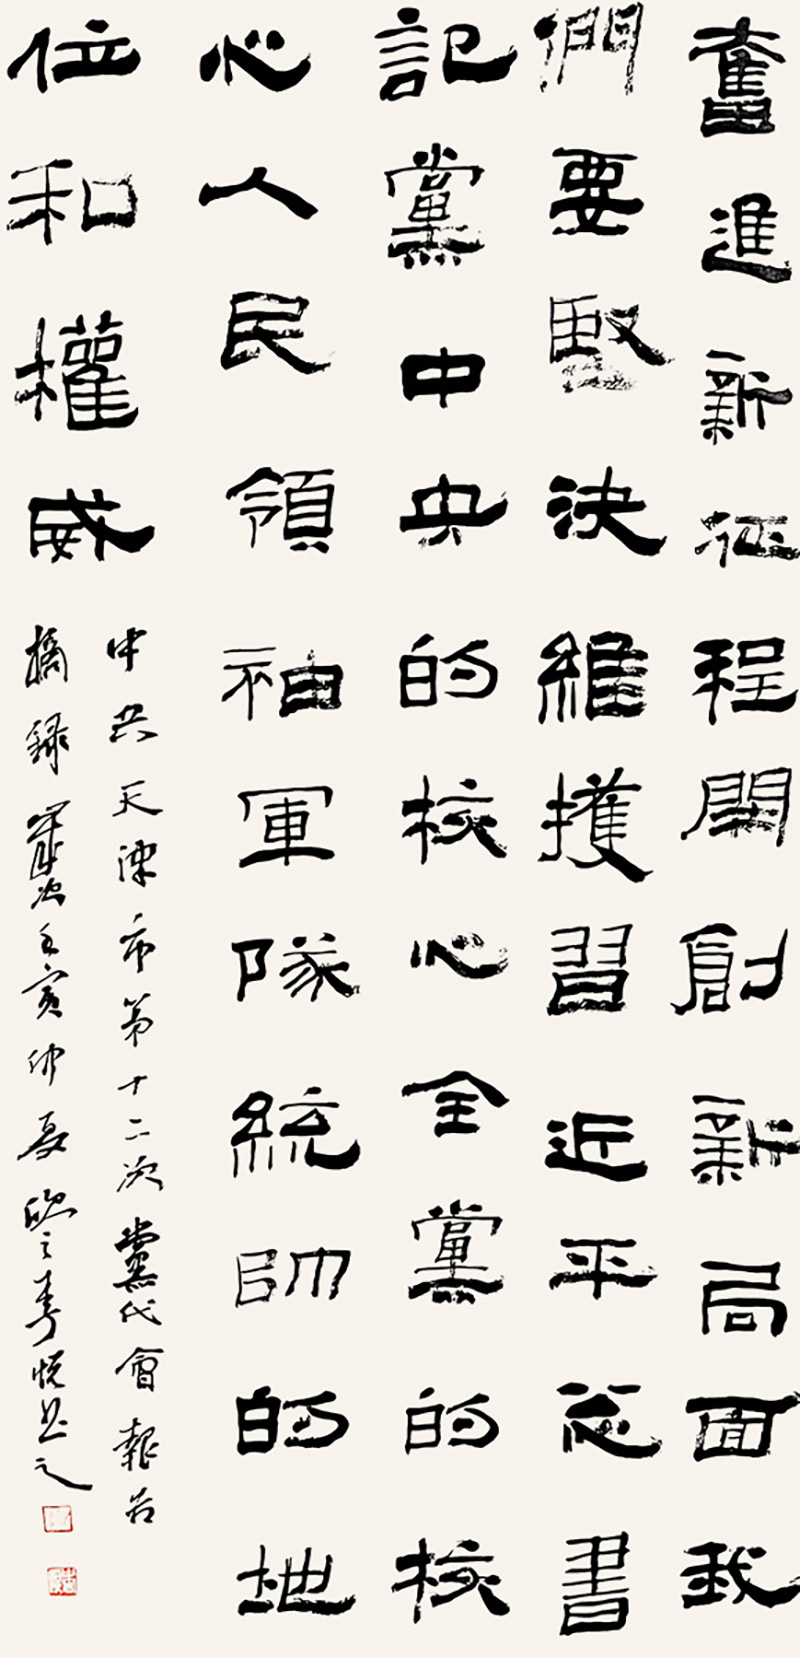 奮進新征程開創新局面我
們要堅決維擭習近平总書
記黨中央的核心全黨的核
心人民領袖軍隊統帥的地
位和權威
中共天津市第十二次黨代會報告
摘錄歲次壬寅仲夏